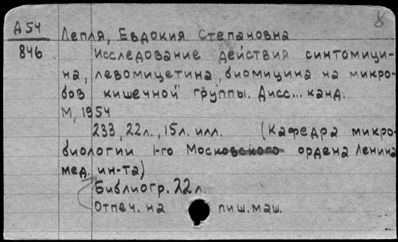 А54
846
Лепля, Евдокия Степановна
Исследование действия синтомици-
на, левомицетина, биомицина на микро-
бов кишечной группы. Дисс... канд.
М, 1954
233, 22л., 15л. илл. (Кафедра микро-
биологии 1-го Московского ордена Ленина
мед. ин-та)
Библиогр. 22 л.
Отпеч. на пиш. маш.